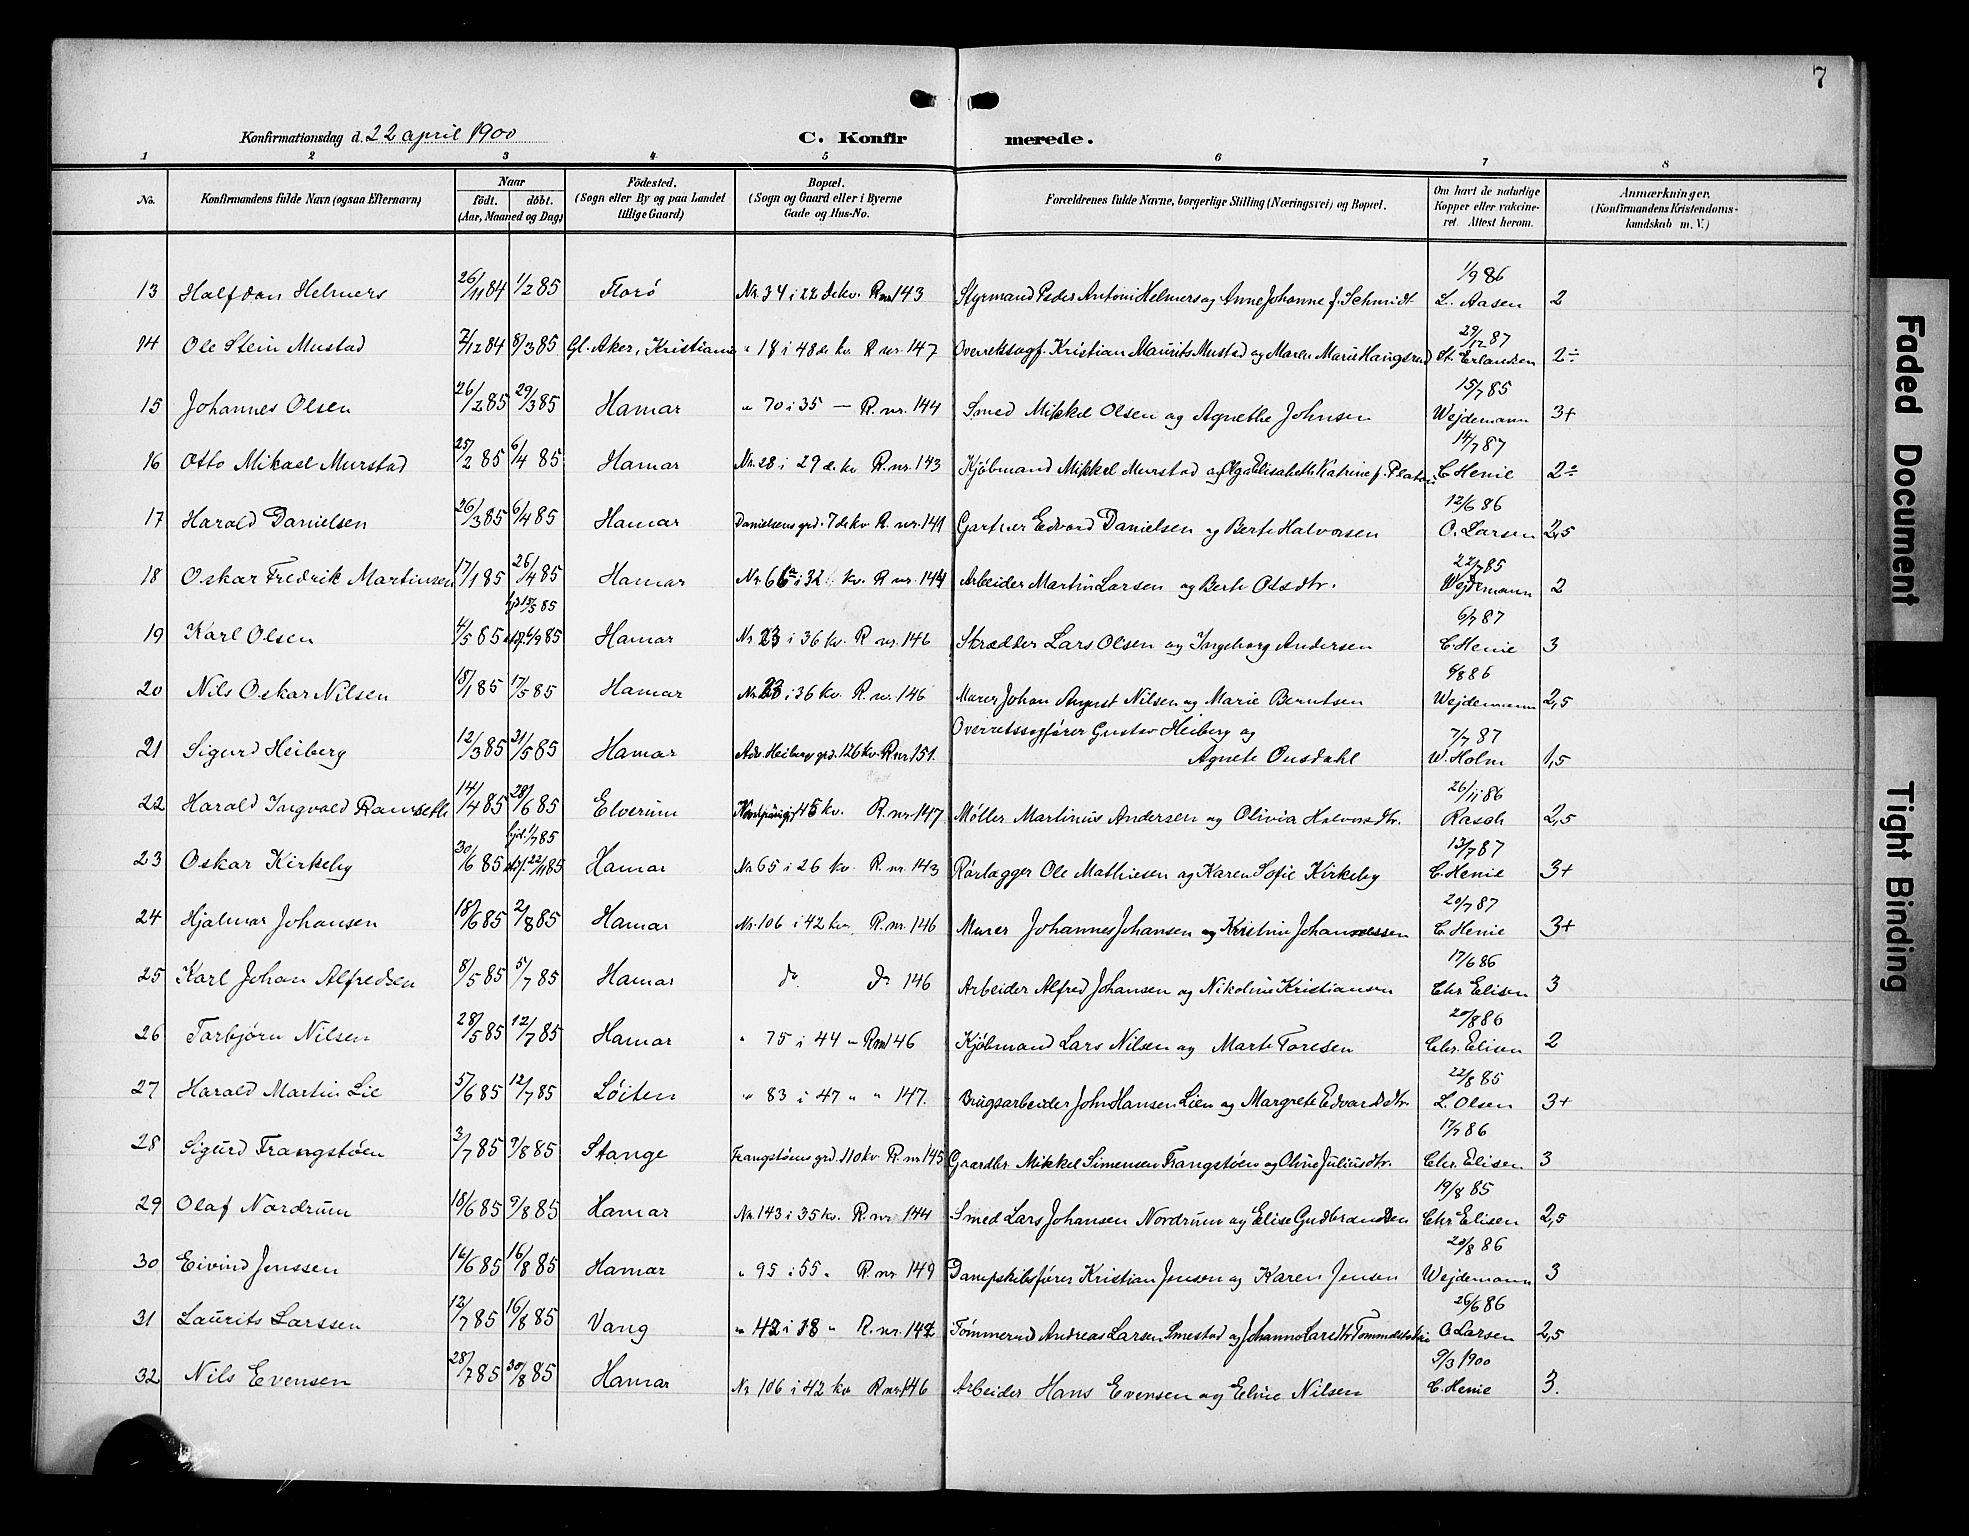 7
Konfirmationsdag d. 22 april 1900 C. Konfirmerede.
1 2 3 4 5 6 7 8
No. Konfirmandens fulde Navn (ogsaa Efternavn) Naar födt. döbt. (Aar, Maaned og Dag) Födested. (Sogn eller By og paa Landet tillige Gaard) Bopæl. (Sogn og Gaard eller i Byerne Gade og Hus-No. Forældrenes fulde Navne, borgerlige Stilling (Næringsvei) og Bopæl. Om havt de naturlige Kopper eller vakcineret. Attest herom. Anmærkninger. (Konfirmandens Kristendomskundskab m. V.)
13 Halfdan Helmers 26/11 84 1/2 85 Florö Nr. 34 i 22 de kv. R nr 143 Styrmand Peder Antoni Helmers og Anne Johanne f. Schmidt 1/9 86 L. Aasen 2
14 Ole Stein Mustad 7/12 84 8/3 85 Gl. Aker, Kristiania " 18 i 48 de kv. R nr. 147 Overretssagf. Kristian Maurits Mustad og Maren Marie Haugsrud 29/12 87 St. Erlandsen 2÷
15 Johannes Olsen 26/2 85 29/3 85 Hamar " 70 i 35 — R. nr. 144 Smed Mikkel Olsen og Agnethe Johnsen 15/7 85 Wejdemann 3+
16 Otto Mikael Murstad 25/2 85 6/4 85 Hamar Nr. 28 i 29 de. kv R. nr. 143 Kjöbmand Mikkel Murstad og Olga Elisabeth Katrine f. Platou 14/7 87 C. Henie 2÷
17 Harald Danielsen 26/3 85 6/4 85 Hamar Danielsens grd. 7 de kv. R. nr. 141 Gartner Edvard Danielsen og Berte Halvorsen 12/6 86 O. Larsen 2,5
18 Oskar Fredrik Martinsen 17/1 85 26/4 85 Hamar Nr. 66a i 32 kv. R nr. 144 Arbeider Martin Larsen og Berte Olsdtr. 22/7 85 Wejdemann 2
19 Karl Olsen 4/5 85 hjd 15/5 85 stf. 6/9 85 Hamar Nr. 23 i 36 kv. R nr. 146 Skrædder Lars Olsen og Ingeborg Andersen 6/7 87 C. Henie 3
20 Nils Oskar Nilsen 18/1 85 17/5 85 Hamar Nr. 23 i 36 kv. R. nr. 146 Murer Johan August Nilsen og Marie Berntsen 6/8 86 Wejdemann 2,5
21 Sigurd Heiberg 12/3 85 31/5 85 Hamar Adv. Heibergs grd. 126 kv. R nr. 151. Overretssagfører Gustav Heiberg og
Agnete Onsdahl 7/7 87 W. Holm 1,5
22 Harald Ingvald Ramseth 14/4 85 28/6 85 Elverum 45 kv. R. nr. 147 Møller Martinius Andersen og Olivia Halvorsdtr. 26/11 86 Rasch 2,5
23 Oskar Kirkeby 30/6 85 hjd. 1/7 85 stf. 22/11 85 Hamar Nr. 65 i 26 kv. R. nr. 143 Rørlægger Ole Mathiesen og Karen Sofie Kirkeby 13/7 87 C. Henie 3+
24 Hjalmar Johansen 18/6 85 2/8 85 Hamar Nr. 106 i 42 kv. R. nr. 146 Murer Johannes Johansen og Kristine Johannessen 20/7 87 C. Henie 3+
25 Karl Johan Alfredsen 8/5 85 5/7 85 Hamar do. do 146 Arbeider Alfred Johansen og Nikoline Kristiansen 17/6 86 Chr. Elisen 3
26 Torbjörn Nilsen 28/5 85 12/7 85 Hamar " 75 i 44 " R nr 146 Kjöbmand Lars Nilsen og Marte Toresen 20/8 86 Chr. Elisen 2
27 Harald Martin Lie 5/6 85 12/7 85 Löiten " 83 i 47 " " 147. Brugsarbeider John Hansen Lien og Margrete Edvardsdtr. 22/8 85 L. Olsen 3+
28 Sigurd Frangstøen 3/7 85 9/8 85 Stange Frangstøens grd. 110 kv. R. nr 145 Gaardbr. Mikkel Simensen Frangstøen og Oline Juliusdtr. 17/7 86 Chr. Elisen 3
29 Olaf Nordrum 18/6 85 9/8 85 Hamar Nr. 143 i 35 kv. R. nr. 144 Smed Lars Johansen Nordrum og Elise Gudbrandsen 19/8 85 Chr Elisen 2,5
30 Eivind Jenssen 16/6 85 16/8 85 Hamar " 95 i 55 " R. nr. 149 Dampskibsfører Kristian Jensen og Karen Jensen 20/8 86 Wejdemann 3
31 Laurits Larssen 12/7 85 16/8 85 Vang " 42 i 18 " R. nr. 142 Tømmermd Andreas Larsen Smestad og Johanne Larsdtr 26/6 86 O. Larsen 2,5
32 Nils Evensen 28/7 85 30/8 85 Hamar Nr 106 i 42 kv R nr. 146 Arbeider Hans Evensen og Eline Nilsen 9/3 1900 C. Henie 3.
Faded Document
Tight Binding